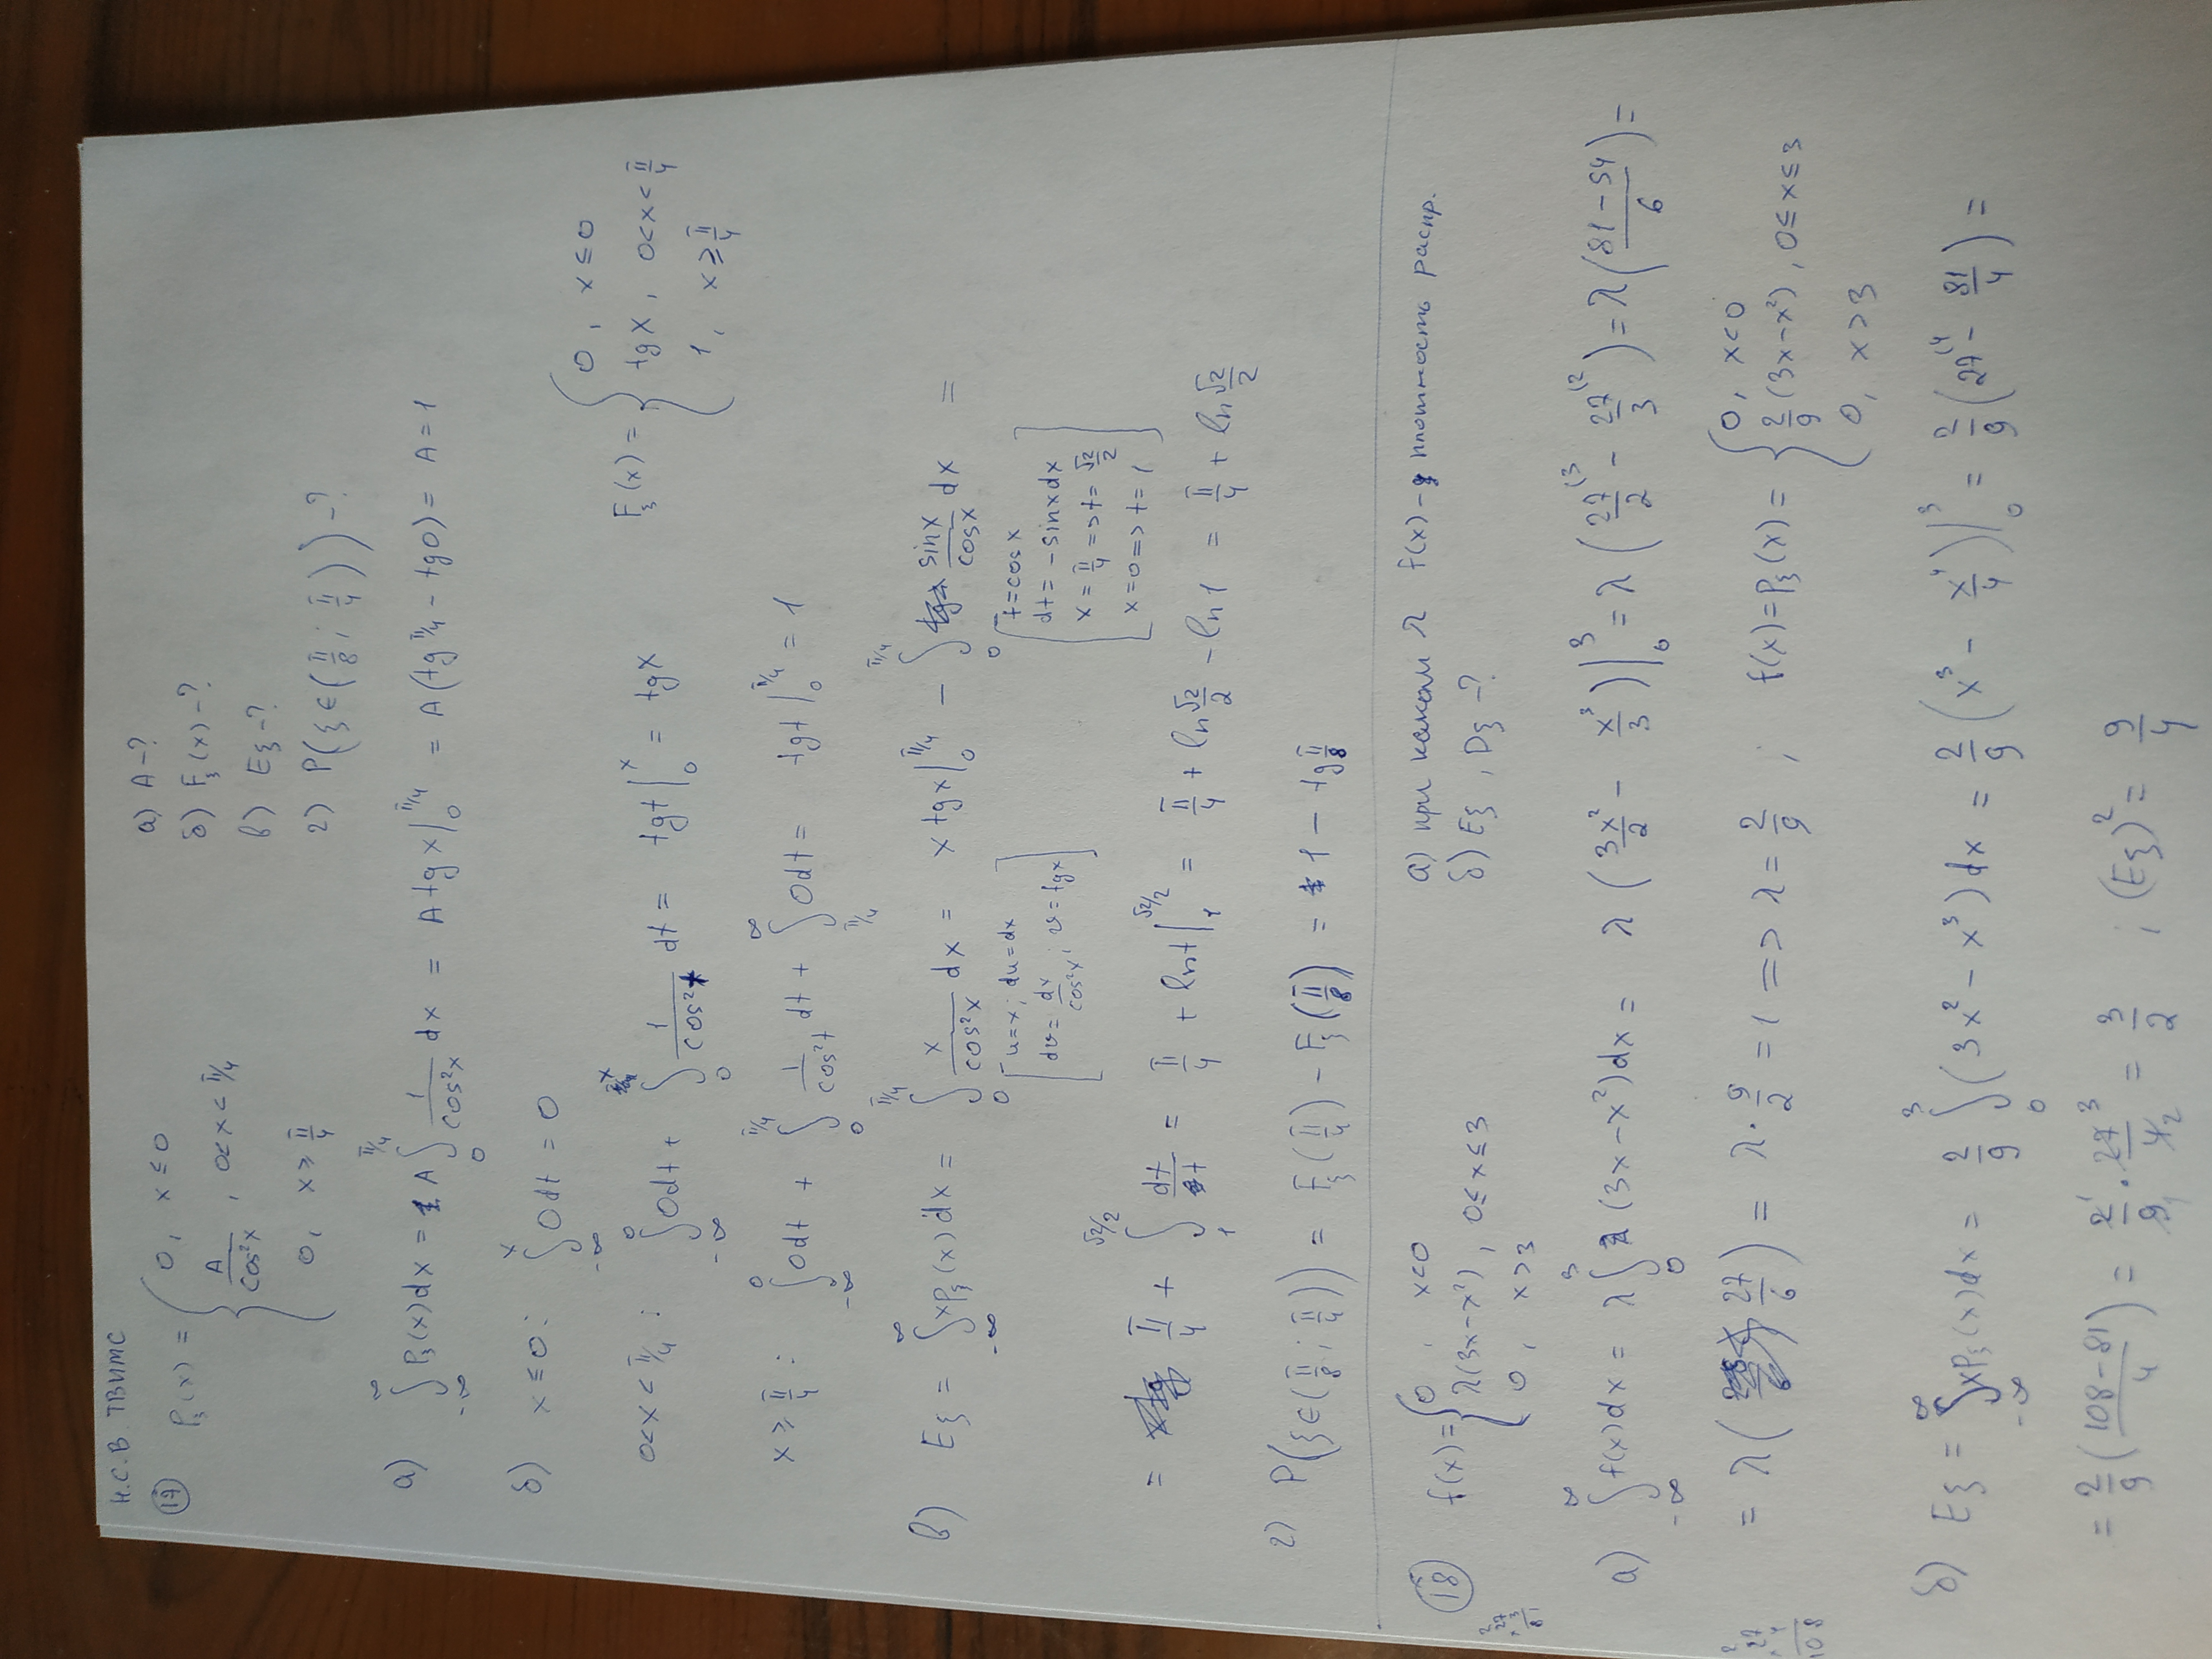 Н.С.В. ТВИМС
(17) P_ξ(x) = { 0, x ≤ 0
A/cos²x, 0<x<π/4
0, x ≥ π/4
а) A -?
б) F_ξ(x) -?
в) Eξ -?
г) P(ξ∈(π/8; π/4)) -?
а) ∫_{-∞}^{∞} P_ξ(x)dx = A∫_0^{π/4} 1/cos²x dx = A tg x|_0^{π/4} = A(tg π/4 - tg 0) = A = 1
б) x ≤ 0: ∫_{-∞}^{x} 0dt = 0
0<x<π/4: ∫_{-∞}^{0} 0dt + ∫_0^{x} 1/cos²t dt = tgt|_0^{x} = tgx
F_ξ(x) = { 0, x ≤ 0
tgx, 0<x<π/4
1, x ≥ π/4
x ≥ π/4: ∫_{-∞}^{0} 0dt + ∫_0^{π/4} 1/cos²t dt + ∫_{π/4}^{∞} 0dt = tgt|_0^{π/4} = 1
в) Eξ = ∫_{-∞}^{∞} xp_ξ(x)dx = ∫_0^{π/4} x/cos²x dx = x tgx|_0^{π/4} - ∫_0^{π/4} sinx/cosx dx =
[u=x; du=dx
dv = dx/cos²x; v=tgx]
[t=cosx
dt = -sinxdx
x = π/4 => t = √2/2
x=0 => t=1]
= π/4 + ∫_1^{√2/2} dt/t = π/4 + lnt|_1^{√2/2} = π/4 + ln √2/2 - ln1 = π/4 + ln √2/2
г) P(ξ∈(π/8; π/4)) = F_ξ(π/4) - F_ξ(π/8) = 1 - tg π/8
(18) f(x) = { 0, x<0
λ(3x-x²), 0≤x≤3
0, x>3
а) при каком λ f(x) - плотность распр.
б) Eξ, Dξ -?
а) ∫_{-∞}^{∞} f(x)dx = λ∫_0^3 (3x-x²)dx = λ(3x²/2 - x³/3)|_0^3 = λ(27/2^{(3} - 27/3^{(2}) = λ((81-54)/6) =
= λ(27/6) = λ·9/2 = 1 => λ = 2/9 ; f(x) = P_ξ(x) = { 0, x<0
2/9(3x-x²), 0≤x≤3
0, x>3
б) Eξ = ∫_{-∞}^{∞} xP_ξ(x)dx = 2/9 ∫_0^3 (3x²-x³)dx = 2/9(x³ - x⁴/4)|_0^3 = 2/9(27^{(4} - 81/4) =
= 2/9((108-81)/4) = 2¹/9₁ · 27³/4₂ = 3/2 ; (Eξ)² = 9/4